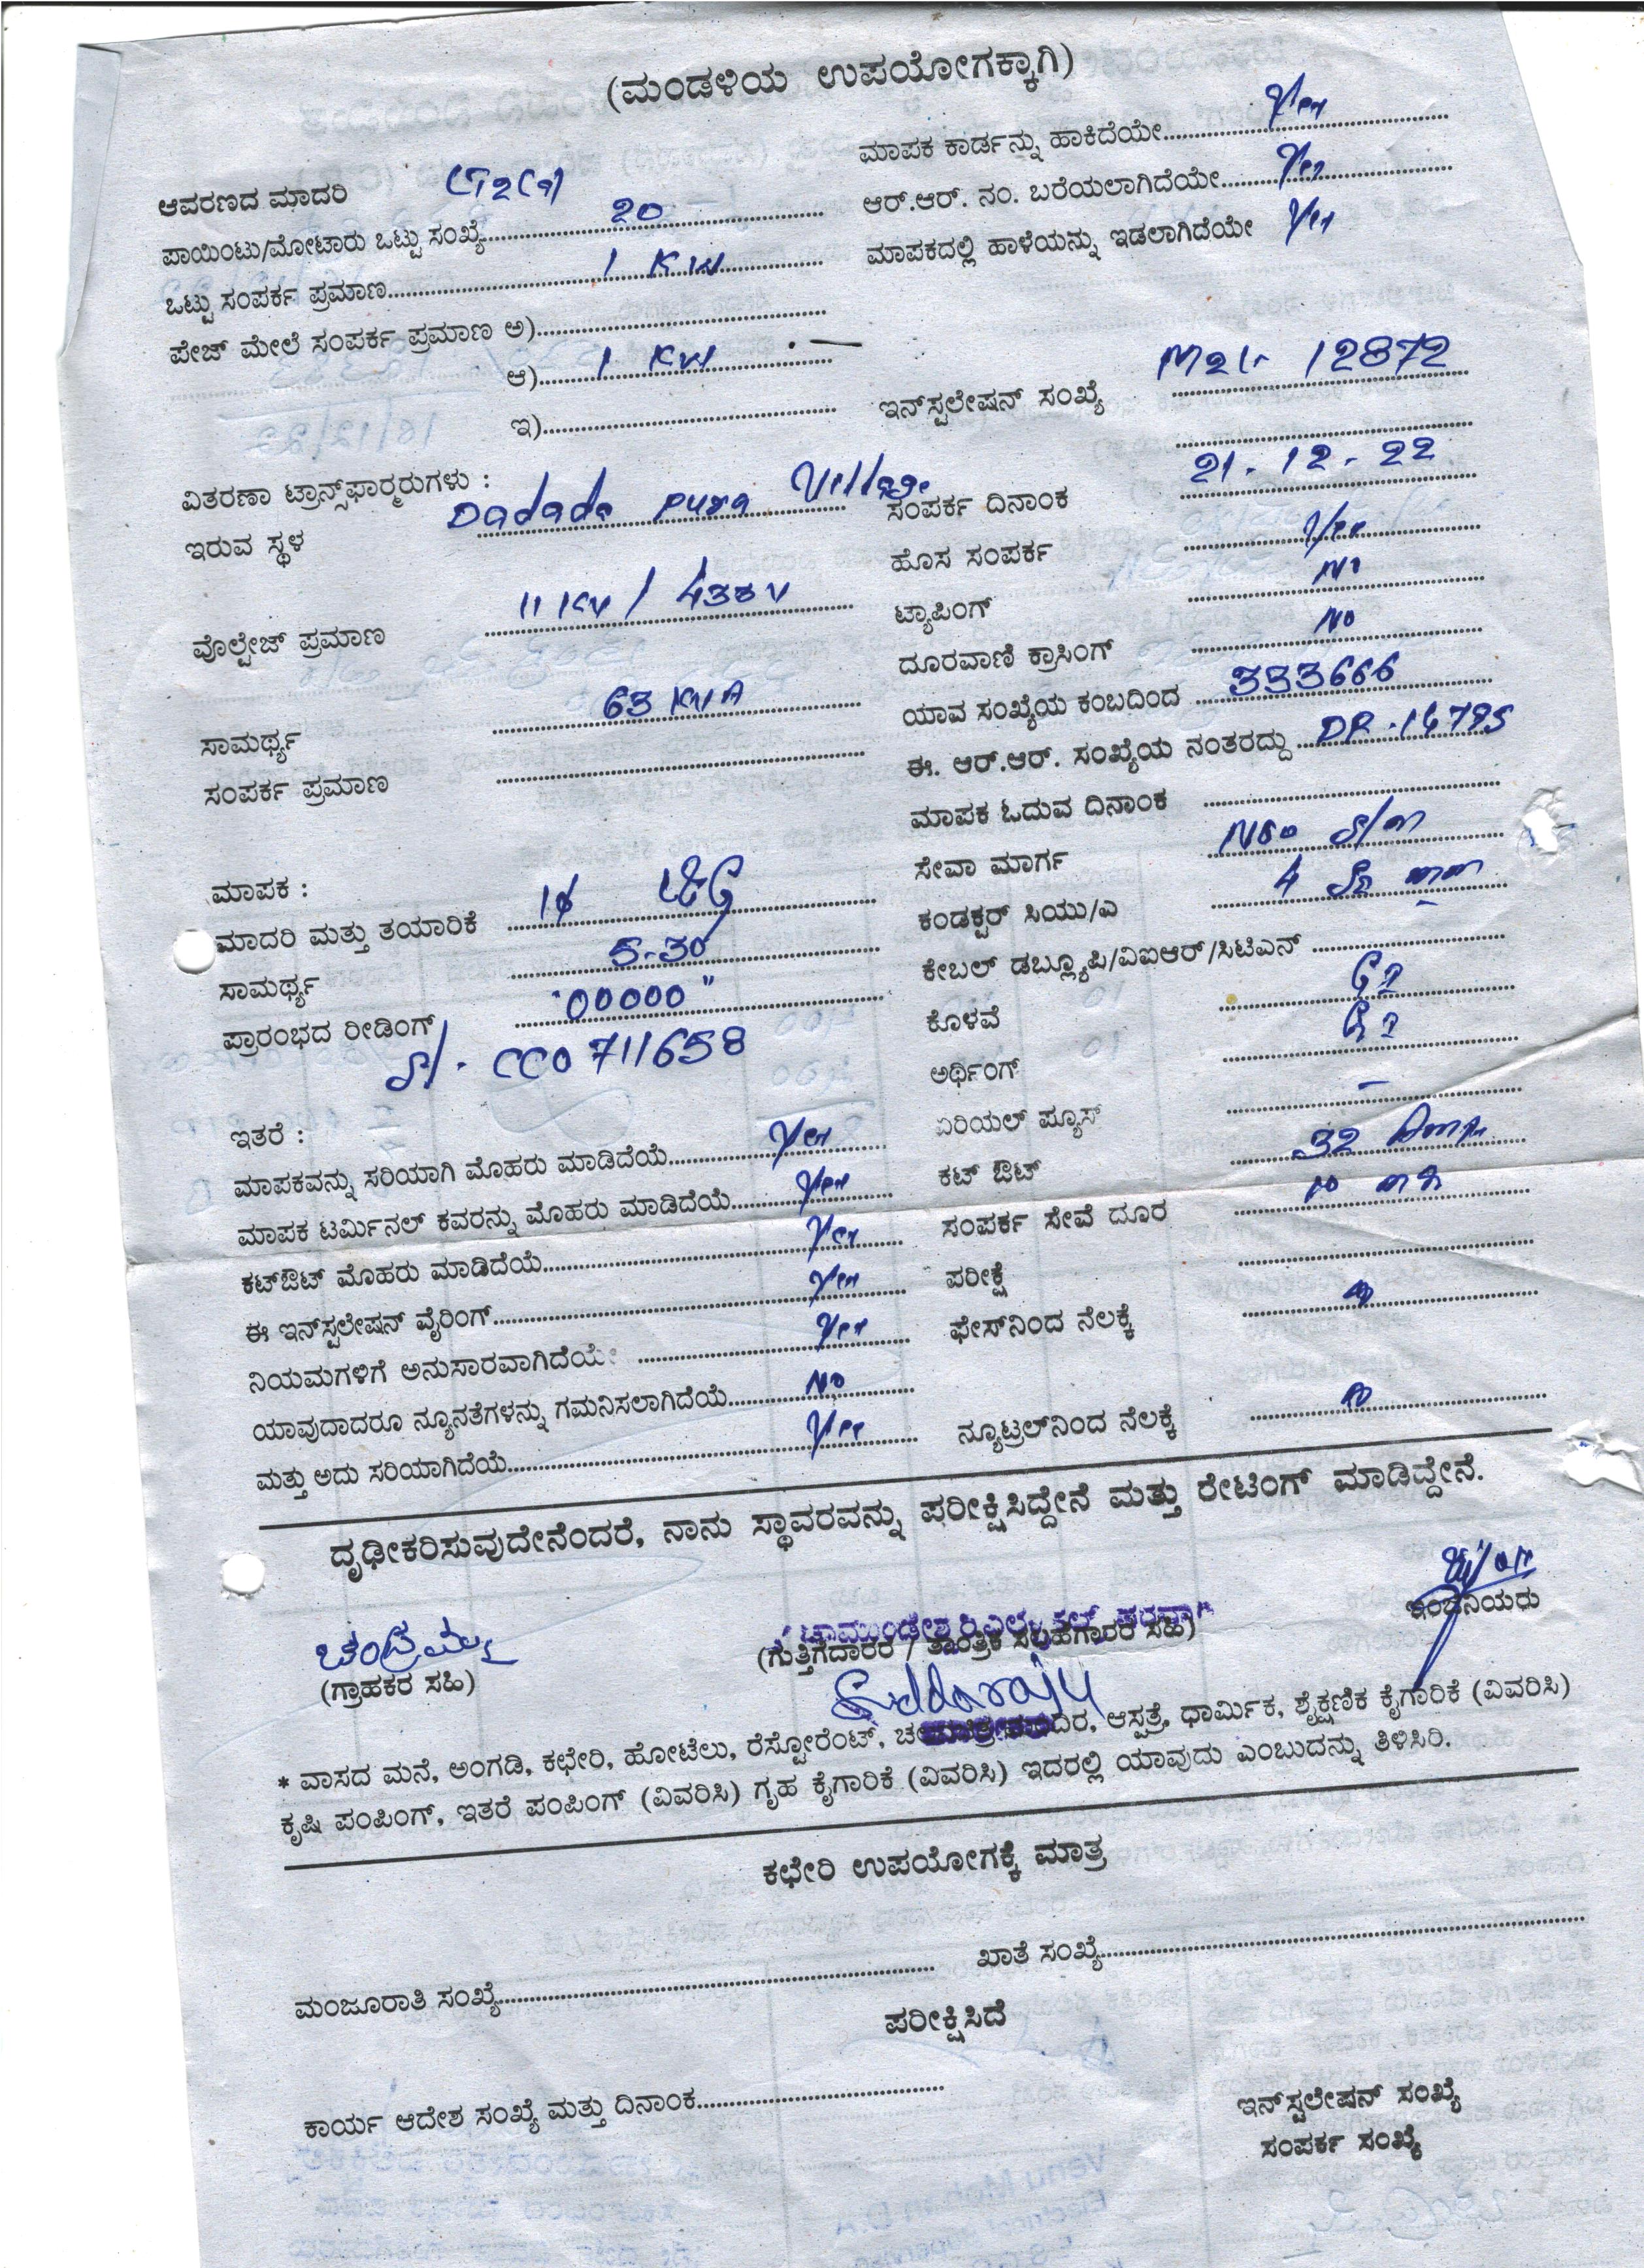 (ಮಂಡಳಿಯ ಉಪಯೋಗಕ್ಕಾಗಿ)
ಆವರಣದ ಮಾದರಿ
ಪಾಯಿಂಟು/ಮೋಟಾರು ಒಟ್ಟು ಸಂಖ್ಯೆ 20
ಒಟ್ಟು ಸಂಪರ್ಕ ಪ್ರಮಾಣ 1 KW
ಪೇಜ್ ಮೇಲೆ ಸಂಪರ್ಕ ಪ್ರಮಾಣ ಅ)
ಆ) 1 KW
ಇ)
ವಿತರಣಾ ಟ್ರಾನ್ಸ್‌ಫಾರ್‍ಮರುಗಳು :
ಇರುವ ಸ್ಥಳ Dadada pura Village
ವೊಲ್ಟೇಜ್ ಪ್ರಮಾಣ 11 KV / 433 V
ಸಾಮರ್ಥ್ಯ 63 KVA
ಸಂಪರ್ಕ ಪ್ರಮಾಣ
ಮಾಪಕ :
ಮಾದರಿ ಮತ್ತು ತಯಾರಿಕೆ 1ϕ L&G
ಸಾಮರ್ಥ್ಯ 5-30
ಪ್ರಾರಂಭದ ರೀಡಿಂಗ್ "00000"
Sl. CC0711658
ಇತರೆ :
ಮಾಪಕವನ್ನು ಸರಿಯಾಗಿ ಮೊಹರು ಮಾಡಿದೆಯೆ Yes
ಮಾಪಕ ಟರ್ಮಿನಲ್ ಕವರನ್ನು ಮೊಹರು ಮಾಡಿದೆಯೆ Yes
ಕಟ್‌ಔಟ್ ಮೊಹರು ಮಾಡಿದೆಯೆ Yes
ಈ ಇನ್‌ಸ್ಟಲೇಷನ್ ವೈರಿಂಗ್ Yes
ನಿಯಮಗಳಿಗೆ ಅನುಸಾರವಾಗಿದೆಯೇ Yes
ಯಾವುದಾದರೂ ನ್ಯೂನತೆಗಳನ್ನು ಗಮನಿಸಲಾಗಿದೆಯೆ No
ಮತ್ತು ಅದು ಸರಿಯಾಗಿದೆಯೆ Yes
ಮಾಪಕ ಕಾರ್ಡನ್ನು ಹಾಕಿದೆಯೇ Yes
ಆರ್.ಆರ್. ನಂ. ಬರೆಯಲಾಗಿದೆಯೇ Yes
ಮಾಪಕದಲ್ಲಿ ಹಾಳೆಯನ್ನು ಇಡಲಾಗಿದೆಯೇ Yes
ಇನ್‌ಸ್ಟಲೇಷನ್ ಸಂಖ್ಯೆ 12872
ಸಂಪರ್ಕ ದಿನಾಂಕ 21-12-22
ಹೊಸ ಸಂಪರ್ಕ Yes
ಟ್ಯಾಪಿಂಗ್ No
ದೂರವಾಣಿ ಕ್ರಾಸಿಂಗ್ No
ಯಾವ ಸಂಖ್ಯೆಯ ಕಂಬದಿಂದ 333666
ಈ. ಆರ್.ಆರ್. ಸಂಖ್ಯೆಯ ನಂತರದ್ದು DP-14795
ಮಾಪಕ ಓದುವ ದಿನಾಂಕ
ಸೇವಾ ಮಾರ್ಗ
ಕಂಡಕ್ಟರ್ ಸಿಯು/ಎ 4
ಕೇಬಲ್ ಡಬ್ಲ್ಯೂಪಿ/ವಿಐಆರ್/ಸಿಟಿಎನ್
ಕೊಳವೆ GI
ಅರ್ಥಿಂಗ್ GI
ಏರಿಯಲ್ ಫ್ಯೂಸ್ -
ಕಟ್ ಔಟ್ 32 Amp
ಸಂಪರ್ಕ ಸೇವೆ ದೂರ
ಪರೀಕ್ಷೆ
ಫೇಸ್‌ನಿಂದ ನೆಲಕ್ಕೆ
ನ್ಯೂಟ್ರಲ್‌ನಿಂದ ನೆಲಕ್ಕೆ
ದೃಢೀಕರಿಸುವುದೇನೆಂದರೆ, ನಾನು ಸ್ಥಾವರವನ್ನು ಪರೀಕ್ಷಿಸಿದ್ದೇನೆ ಮತ್ತು ರೇಟಿಂಗ್ ಮಾಡಿದ್ದೇನೆ.
ಚಂದ್ರಮ್ಮ
(ಗ್ರಾಹಕರ ಸಹಿ)
(ಗುತ್ತಿಗೆದಾರರ / ತಾಂತ್ರಿಕ ಸಲಹೆಗಾರರ ಸಹಿ)
Siddaraju
ಇಂಜಿನಿಯರು
* ವಾಸದ ಮನೆ, ಅಂಗಡಿ, ಕಛೇರಿ, ಹೋಟೆಲು, ರೆಸ್ಟೋರೆಂಟ್, ಆಸ್ಪತ್ರೆ, ಧಾರ್ಮಿಕ, ಶೈಕ್ಷಣಿಕ ಕೈಗಾರಿಕೆ (ವಿವರಿಸಿ)
ಕೃಷಿ ಪಂಪಿಂಗ್, ಇತರೆ ಪಂಪಿಂಗ್ (ವಿವರಿಸಿ) ಗೃಹ ಕೈಗಾರಿಕೆ (ವಿವರಿಸಿ) ಇದರಲ್ಲಿ ಯಾವುದು ಎಂಬುದನ್ನು ತಿಳಿಸಿರಿ.
ಕಛೇರಿ ಉಪಯೋಗಕ್ಕೆ ಮಾತ್ರ
ಮಂಜೂರಾತಿ ಸಂಖ್ಯೆ ಖಾತೆ ಸಂಖ್ಯೆ
ಪರೀಕ್ಷಿಸಿದೆ
ಕಾರ್ಯ ಆದೇಶ ಸಂಖ್ಯೆ ಮತ್ತು ದಿನಾಂಕ
ಇನ್‌ಸ್ಟಲೇಷನ್ ಸಂಖ್ಯೆ
ಸಂಪರ್ಕ ಸಂಖ್ಯೆ